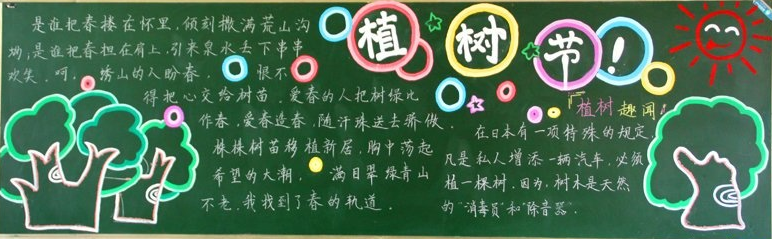 植树节！
是谁把春搂在怀里，倾刻撒满荒山沟
坳，是谁把春担在肩上，引来泉水去下串串
欢笑。呵，绣山的人盼春，恨不
得把心交给树苗，爱春的人把树绿比
作春，爱春造春，随汗珠送去骄傲。
株株树苗移植新居，胸中荡起
希望的大潮，满目翠绿青山
不老，我找到了春的轨道。
植树趣闻
在日本有一项特殊的规定，
凡是私人增添一辆汽车，必须
植一棵树，因为，树木是天然
的“消毒员”和“除音器”。